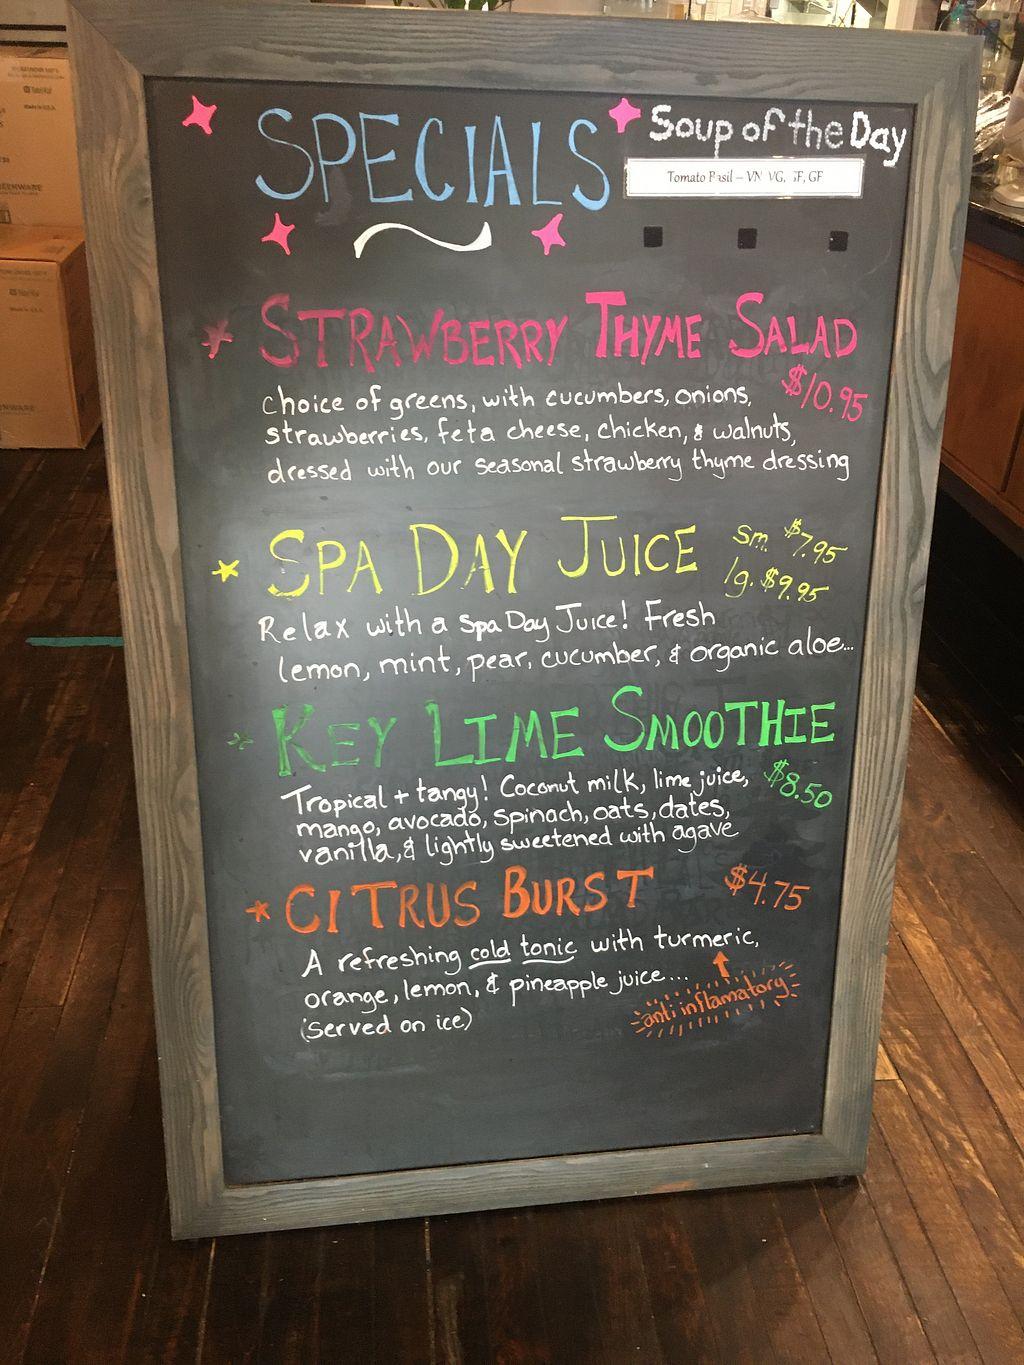 SPECIALS
Soup of the Day
Tomato Basil – VN, VG, SF, GF
STRAWBERRY THYME SALAD
$10.95
choice of greens, with cucumbers, onions,
strawberries, feta cheese, chicken, & walnuts,
dressed with our seasonal strawberry thyme dressing
SPA DAY JUICE
Sm. $7.95
lg. $9.95
Relax with a Spa Day Juice! Fresh
lemon, mint, pear, cucumber, & organic aloe...
KEY LIME SMOOTHIE
$8.50
Tropical + tangy! Coconut milk, lime juice,
mango, avocado, spinach, oats, dates,
vanilla, & lightly sweetened with agave
CITRUS BURST
$4.75
A refreshing cold tonic with turmeric,
orange, lemon, & pineapple juice...
(Served on ice)
anti inflamatory
Made in U.S.A.